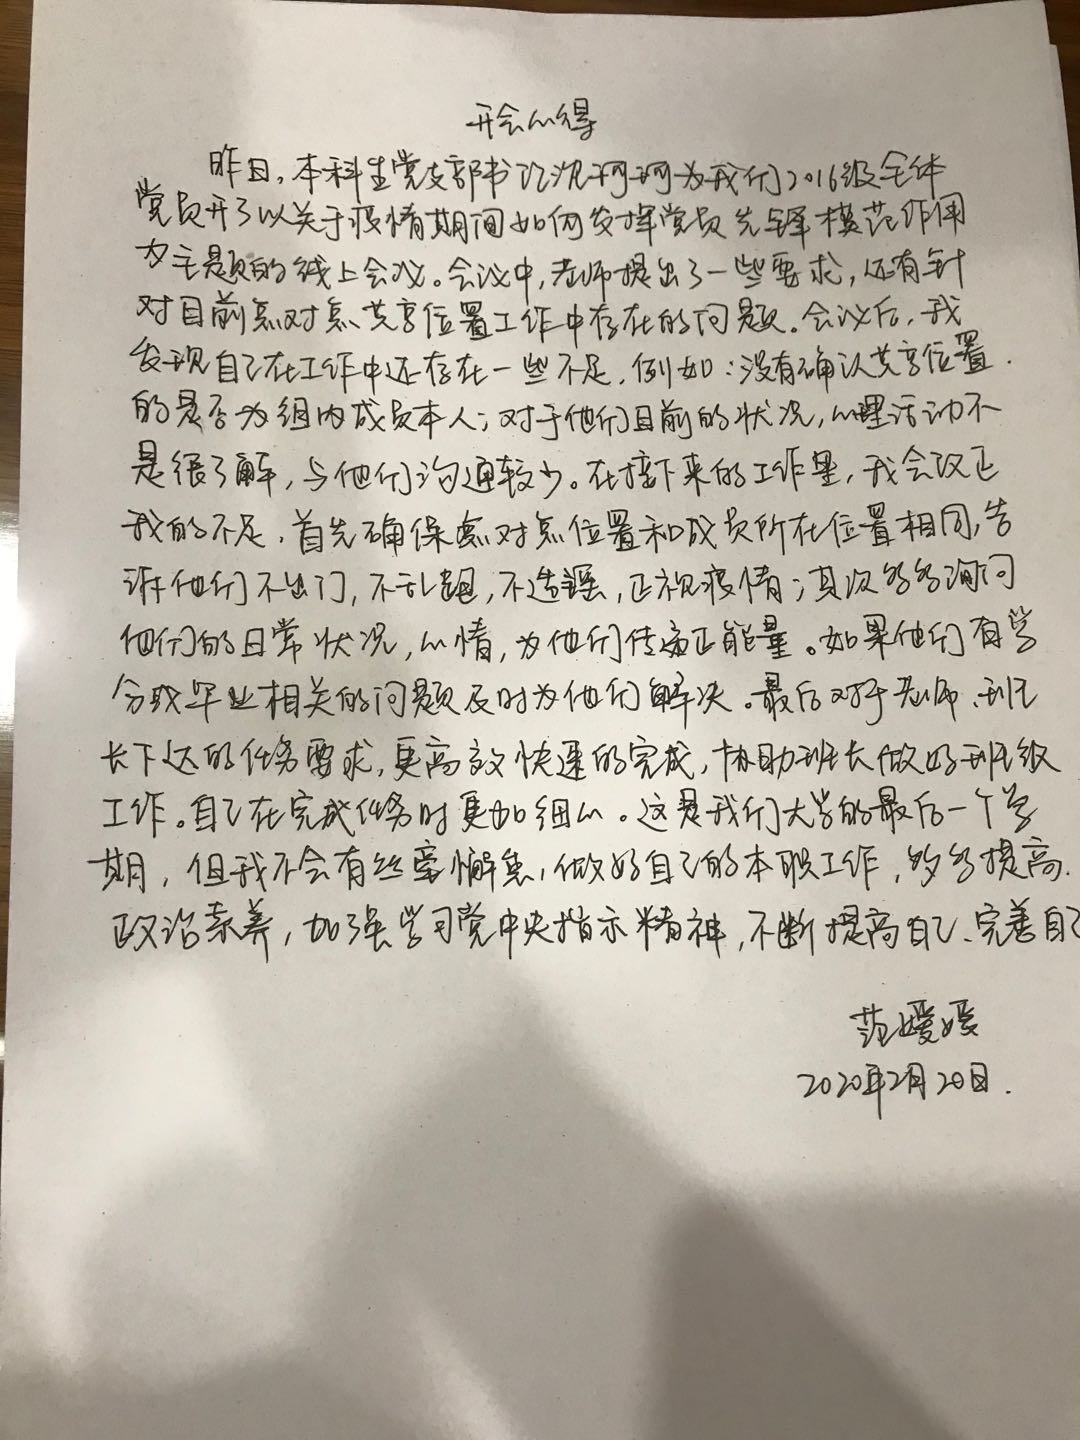 开会心得
昨日，本科生党支部书记沈珂珂为我们2016级全体
党员开了以关于疫情期间如何发挥党员先锋模范作用
为主题的线上会议。会议中，老师提出了一些要求，还有针
对目前点对点共享位置工作中存在的问题。会议后，我
发现自己在工作中还存在一些不足，例如：没有确认共享位置
的是否为组内成员本人；对于他们目前的状况，心理活动不
是很了解，与他们沟通较少。在接下来的工作里，我会改正
我的不足，首先确保点对点位置和成员所在位置相同，告
诉他们不出门，不乱跑，不造谣，正视疫情；其次多多询问
他们的日常状况，心情，为他们传递正能量。如果他们有学
分或毕业相关的问题及时为他们解决。最后对于老师、班
长下达的任务要求，更高效快速的完成，协助班长做好班级
工作。自己在完成任务时更加细心。这是我们大学的最后一个学
期，但我不会有丝毫懈怠，做好自己的本职工作，多多提高
政治素养，加强学习党中央指示精神，不断提高自己、完善自己
范媛媛
2020年2月20日.